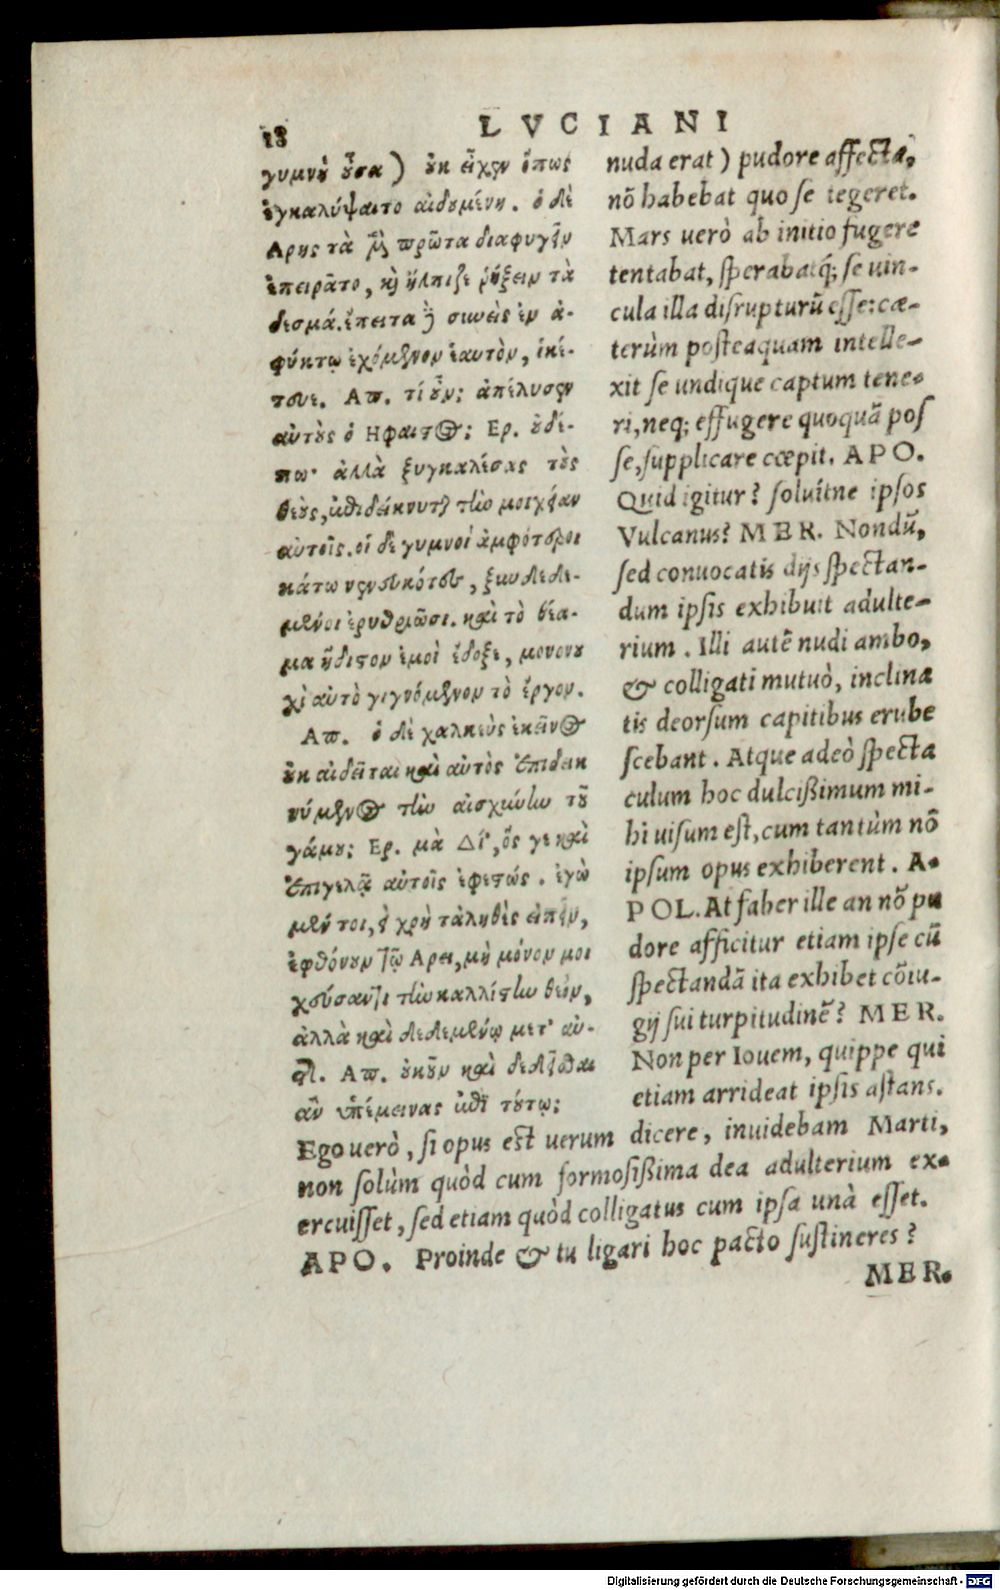 18
LVCIANI
γυμνὴ οὖσα) οὐκ εἶχεν ὅπως
ἐγκαλύψαιτο αἰδουμένη. ὁ δὲ
Αρης τὰ μὲν πρῶτα διαφυγεῖν
ἐπειρᾶτο, καὶ ἤλπιζε ῥήξειν τὰ
δεσμά. ἔπειτα δὲ συνεὶς ἐν ἀ-
φύκτῳ ἐχόμενον ἑαυτὸν, ἱκέ-
τευε. Απ. τί οὖν; ἀπέλυσεν
αὐτοὺς ὁ Ηφαιστος; Ερ. οὐδέ-
πω· ἀλλὰ ξυγκαλέσας τοὺς
θεοὺς, ἐπιδείκνυται τὴν μοιχείαν
αὐτοῖς. οἱ δὲ γυμνοὶ ἀμφότεροι
κάτω νενευκότες, ξυνδεδε-
μένοι ἐρυθριῶσι. καὶ τὸ θέα-
μα ἥδιστον ἐμοὶ ἔδοξε, μονονου
χὶ αὐτὸ γιγνόμενον τὸ ἔργον.
Απ. ὁ δὲ χαλκεὺς ἐκεῖνος
οὐκ αἰδεῖται καὶ αὐτὸς ἐπιδεικ
νύμενος τὴν αἰσχύνην τοῦ
γάμου; Ερ. μὰ Δί', ὅς γε καὶ
ἐπιγελᾷ αὐτοῖς ἐφεστώς. ἐγὼ
μέν τοι, εἰ χρὴ τἀληθὲς εἰπεῖν,
ἐφθόνουν τῷ Αρει, μὴ μόνον μοι
χεύσαντι τὴν καλλίστην θεῶν,
ἀλλὰ καὶ δεδεμένῳ μετ' αὐ-
τῆς. Απ. οὐκοῦν καὶ δεδέσθαι
ἂν ὑπέμεινας ἐπὶ τούτῳ;
nuda erat) pudore affecta,
nõ habebat quo se tegeret.
Mars uerò ab initio fugere
tentabat, sperabatq́; se uin-
cula illa disrupturũ esse: cæ-
terùm posteaquam intelle-
xit se undique captum tene-
ri, neq; effugere quoquã pos
se, supplicare cœpit. APO.
Quid igitur? soluítne ipsos
Vulcanus? MER. Nondũ,
sed conuocatis dijs spectan-
dum ipsis exhibuit adulte-
rium. Illi autẽ nudi ambo,
& colligati mutuò, inclina
tis deorsum capitibus erube
scebant. Atque adeò specta
culum hoc dulcißimum mi-
hi uisum est, cum tantùm nõ
ipsum opus exhiberent. A-
POL. At faber ille an nõ pu
dore afficitur etiam ipse cũ
spectandã ita exhibet cõiu-
gij sui turpitudinẽ? MER.
Non per Iouem, quippe qui
etiam arrideat ipsis astans.
Ego uerò, si opus est uerum dicere, inuidebam Marti,
non solùm quòd cum formosißima dea adulterium ex-
ercuisset, sed etiam quòd colligatus cum ipsa unà esset.
APO. Proinde & tu ligari hoc pacto sustineres?
MER.
Digitalisierung gefördert durch die Deutsche Forschungsgemeinschaft - DFG